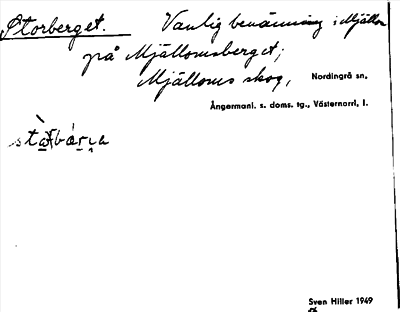 Storberget. Vanlig benämning i Mjällom
på Mjällomsberget;
Mjälloms skog, Nordingrå sn,
Ångermanl. s. doms. tg., Västernorrl, l.
Sven Hiller 1949